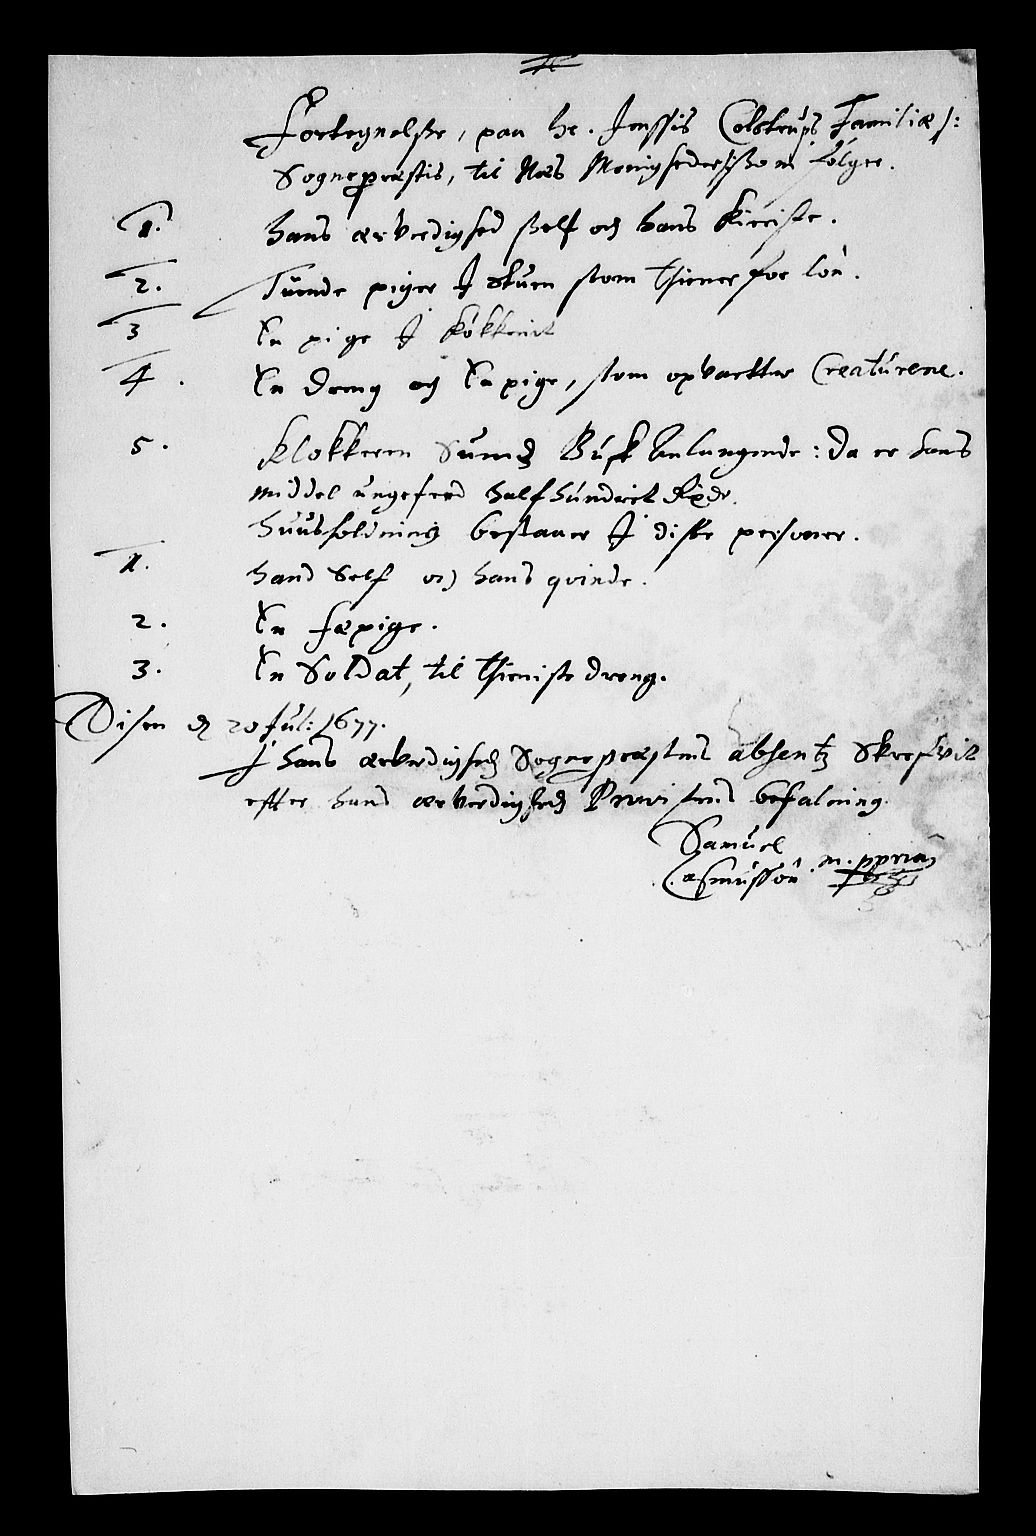 Fortegnelsze, paa hr. Jenssis Colstrups Familiæ /:
Sognepræstis, til Næs Menighederszom følger.
1. hans ærverdighed self och hans Kieriste.
2. Tuende piger J stuen som thiener for lön.
3 En pige J Kökkenit
4. En dreng och En pige, som opvartter Creatúrene.
5. Klokkeren Anlangende: da er hans
middel ungeferd half húndret Rixdr.
huusholdning bestaaer J diste personer.
1. hand Self och hans qvinde.
2. En fæpige.
3. En Soldat, til thieniste dreng.
Disen d 20 Jul: 1677.
J hans ærverdigheds Sognepræstens absentz Skrefvit
effter hans ærverdigheds Provistens befalning.
Samuel
Rasmússön m. ppria